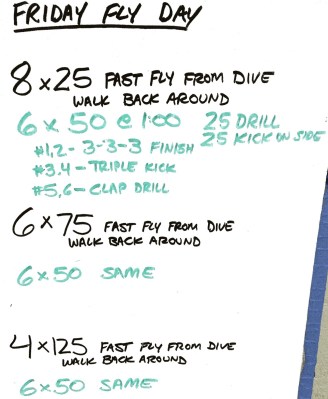 FRIDAY FLY DAY
8x25 FAST FLY FROM DIVE
WALK BACK AROUND
6 x 50 @ 1:00 25 DRILL
25 KICK ON SIDE
#1,2- 3-3-3 FINISH
#3,4- TRIPLE KICK
#5,6- CLAP DRILL
6x75 FAST FLY FROM DIVE
WALK BACK AROUND
6x50 SAME
4x125 FAST FLY FROM DIVE
WALK BACK AROUND
6x50 SAME